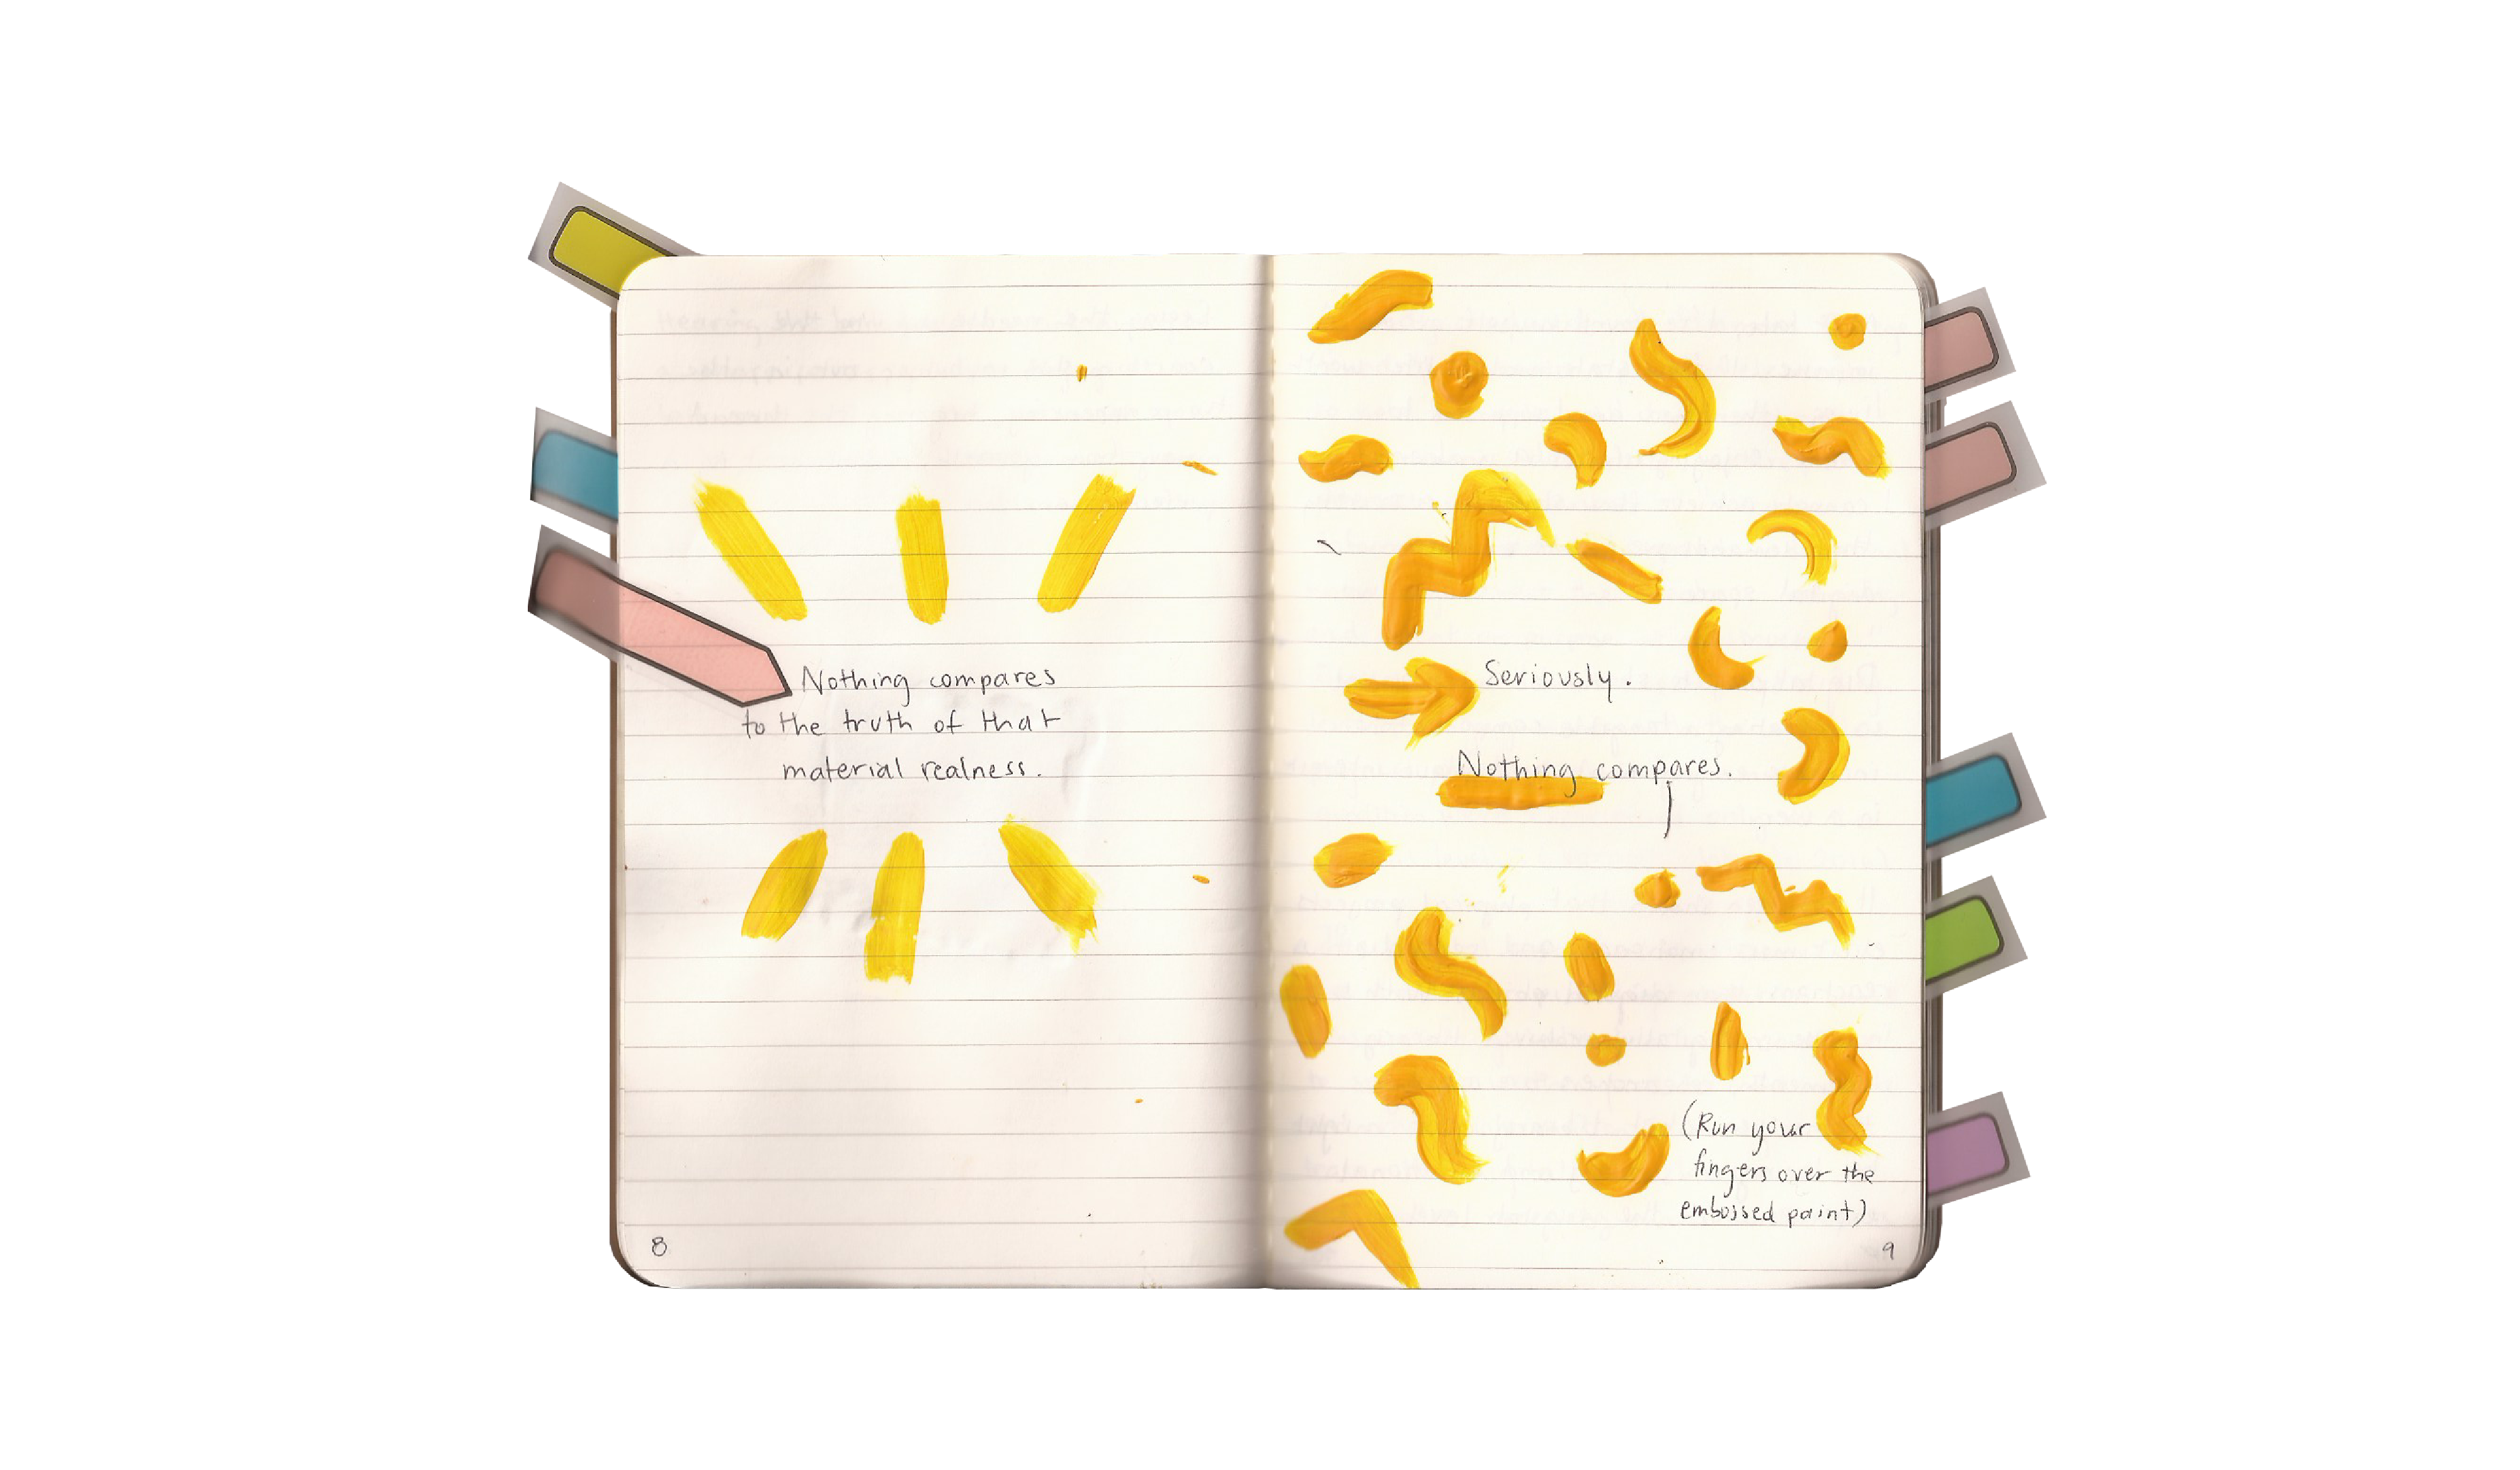 Nothing compares
to the truth of that
material realness.
8
Seriously.
Nothing compares.
(Run your
fingers over the
embossed paint)
9